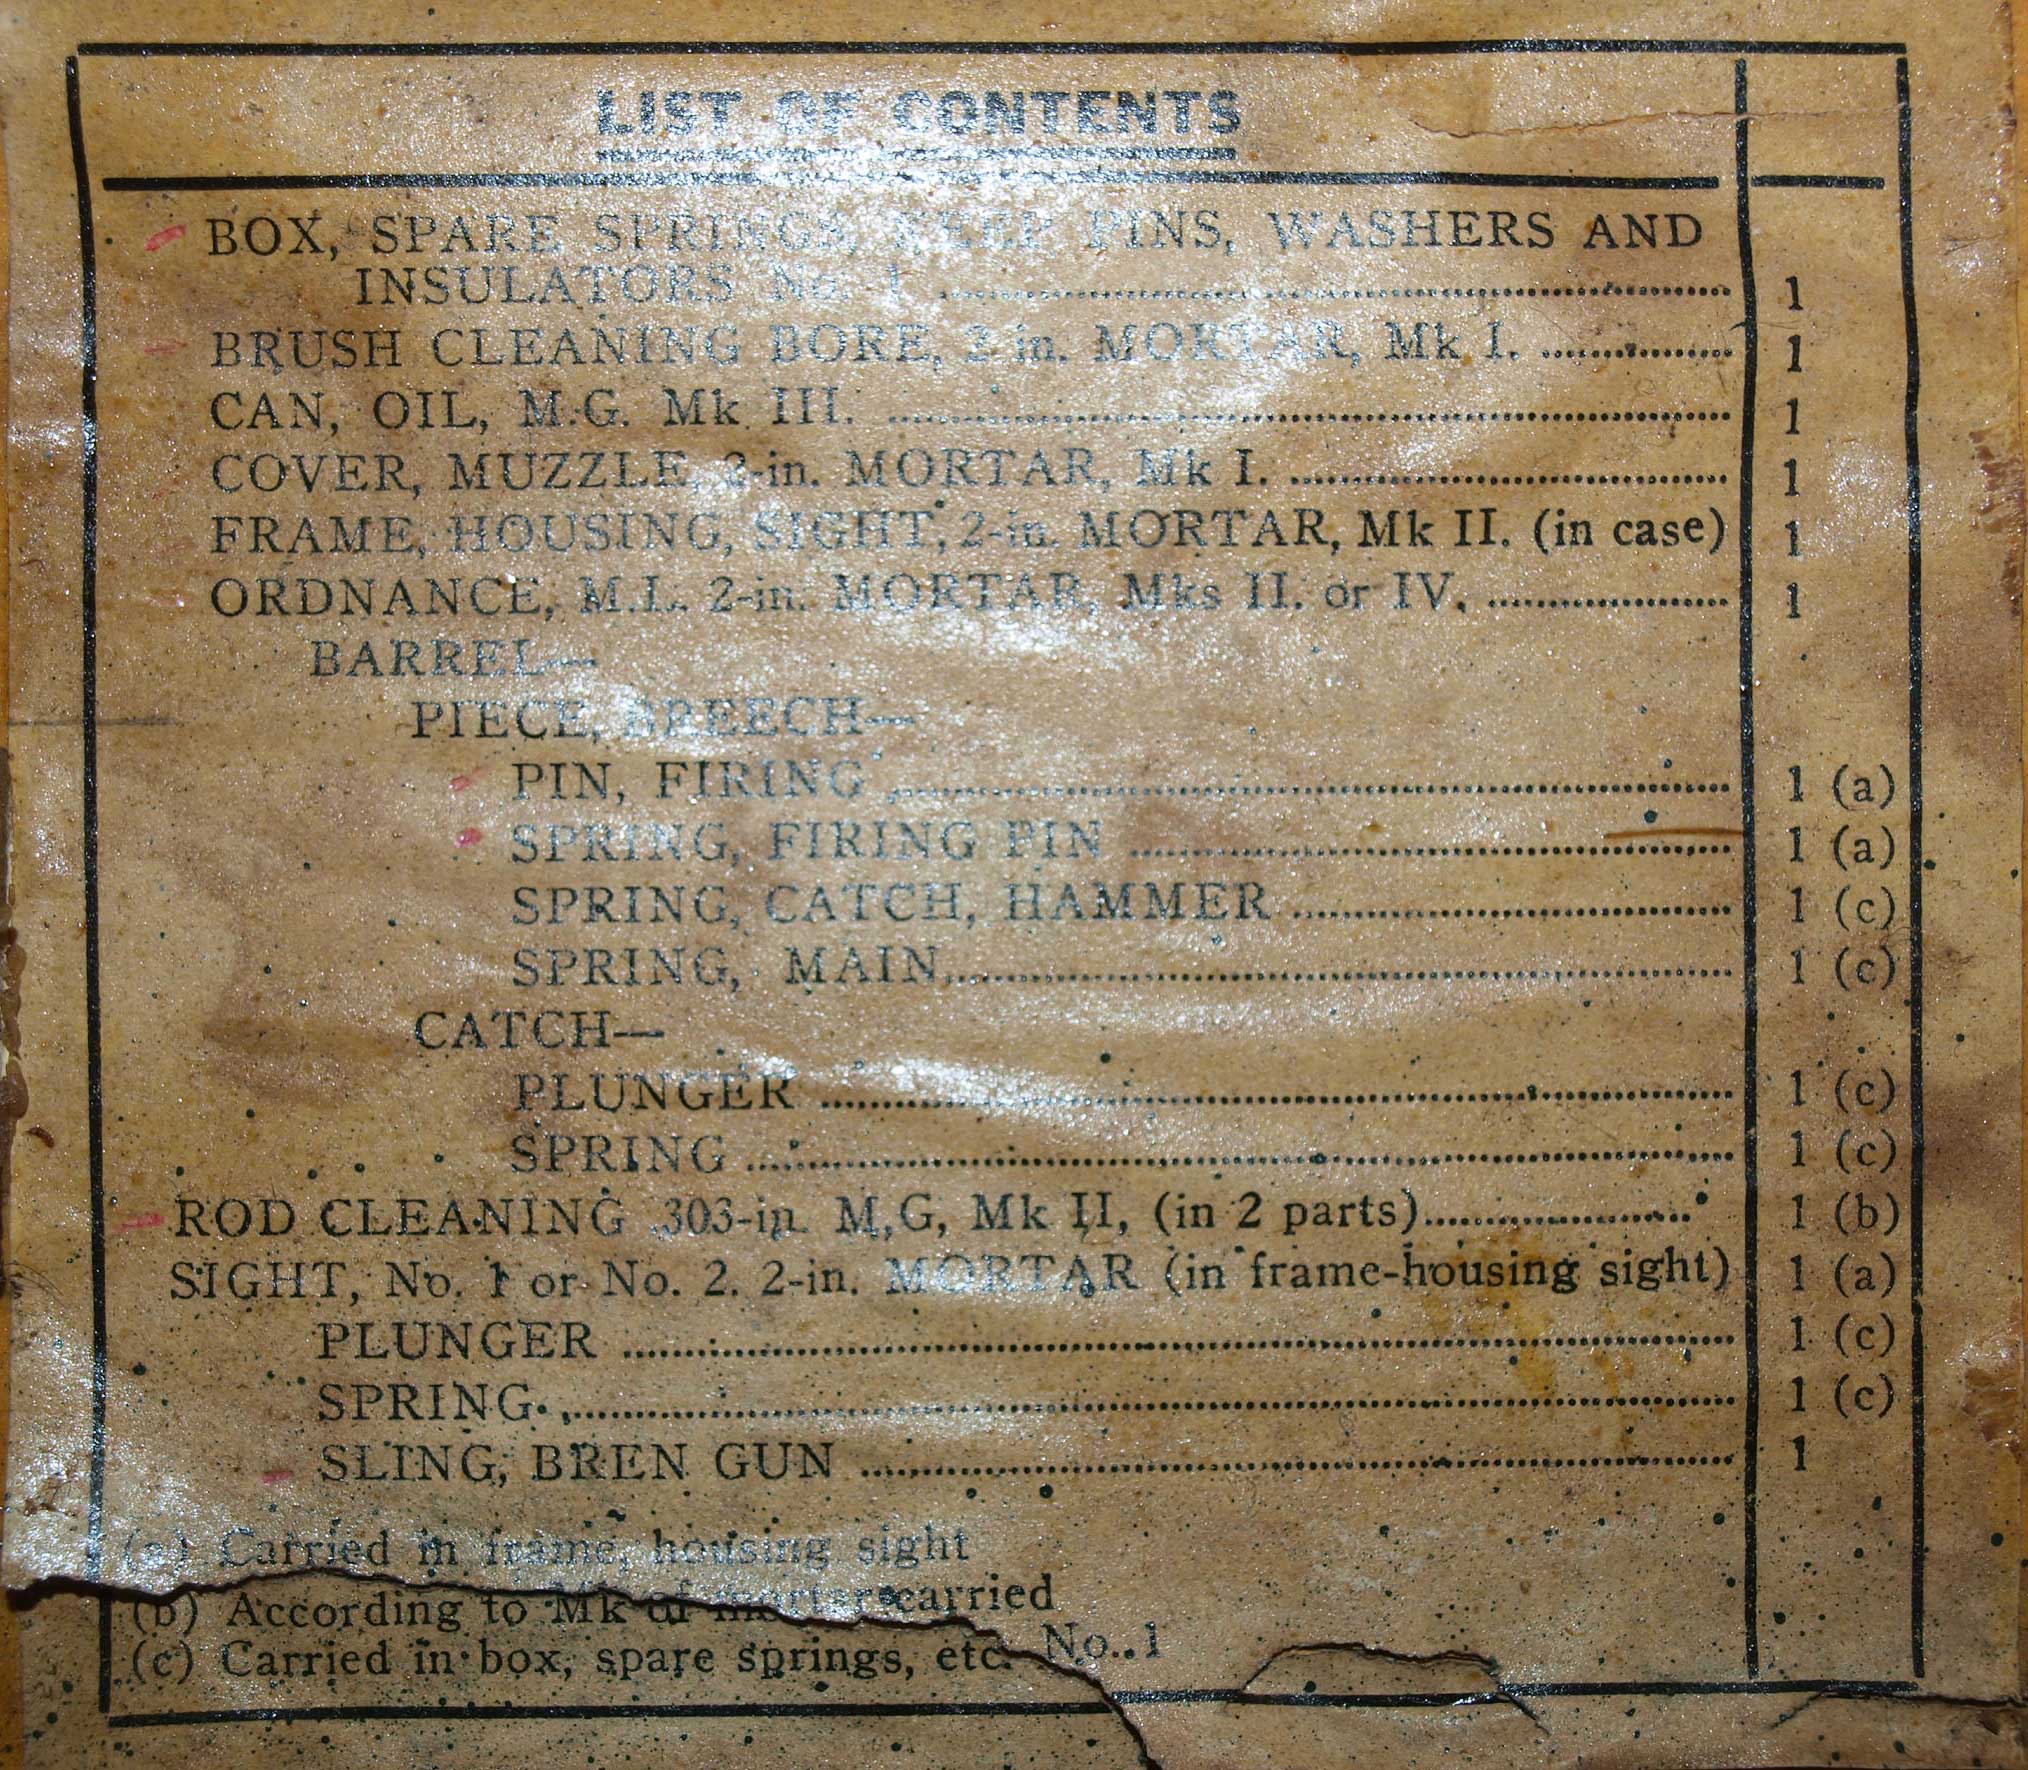 LIST OF CONTENTS
BOX, SPARE SPRINGS, KEEP PINS, WASHERS AND
INSULATORS No. 1 1
BRUSH CLEANING BORE, 2 in. MORTAR, Mk I. 1
CAN, OIL, M.G. Mk III. 1
COVER, MUZZLE, 2-in. MORTAR, Mk I. 1
FRAME, HOUSING, SIGHT, 2-in. MORTAR, Mk II. (in case) 1
ORDNANCE, M.L. 2-in. MORTAR, Mks II. or IV. 1
BARREL—
PIECE, BREECH—
PIN, FIRING 1 (a)
SPRING, FIRING PIN 1 (a)
SPRING, CATCH, HAMMER 1 (c)
SPRING, MAIN 1 (c)
CATCH—
PLUNGER 1 (c)
SPRING 1 (c)
ROD CLEANING .303-in. M,G, Mk II, (in 2 parts) 1 (b)
SIGHT, No. 1 or No. 2. 2-in. MORTAR (in frame-housing sight) 1 (a)
PLUNGER 1 (c)
SPRING 1 (c)
SLING, BREN GUN 1
(a) Carried in frame, housing sight
(b) According to Mk of mortar carried
(c) Carried in box, spare springs, etc. No. 1